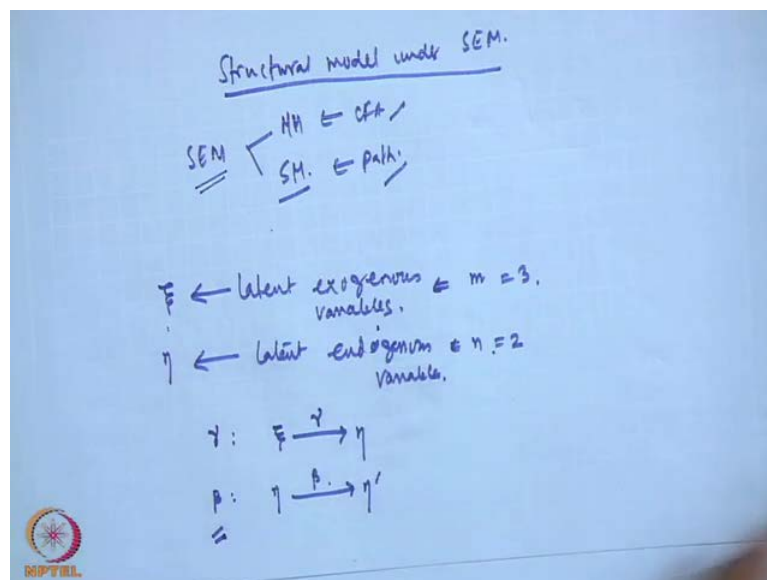 Structural model under SEM.
MM ← CFA
SEM
SM. ← Path.
ξ ← latent exogenous ← m = 3.
variables.
η ← latent endogenous ← n = 2
variable.
γ: ξ —γ→ η
β: η —β.→ η'
NPTEL